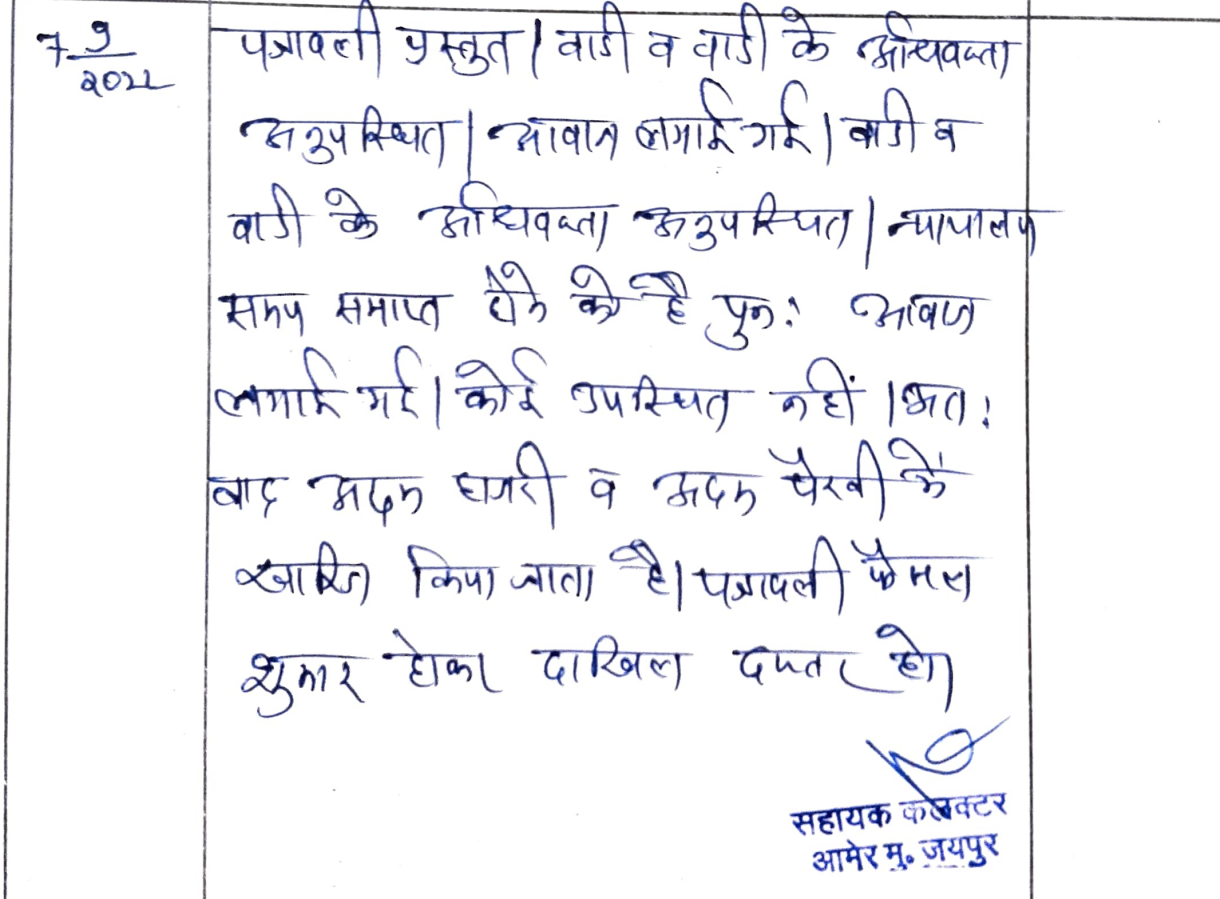 7 9/2022
पत्रावली प्रस्तुत। वादी व वादी के अधिवक्ता
अनुपस्थित। आवाज लगाई गई। वादी व
वादी के अधिवक्ता अनुपस्थित। न्यायालय
समय समाप्त होने को है पुनः आवाज
लगाई गई। कोई उपस्थित नहीं। अतः
वाद अदम हाजरी व अदम पैरवी में
खारिज किया जाता है। पत्रावली फैसल
शुमार होकर दाखिल दफ्तर हो।
सहायक कलेक्टर
आमेर मु. जयपुर